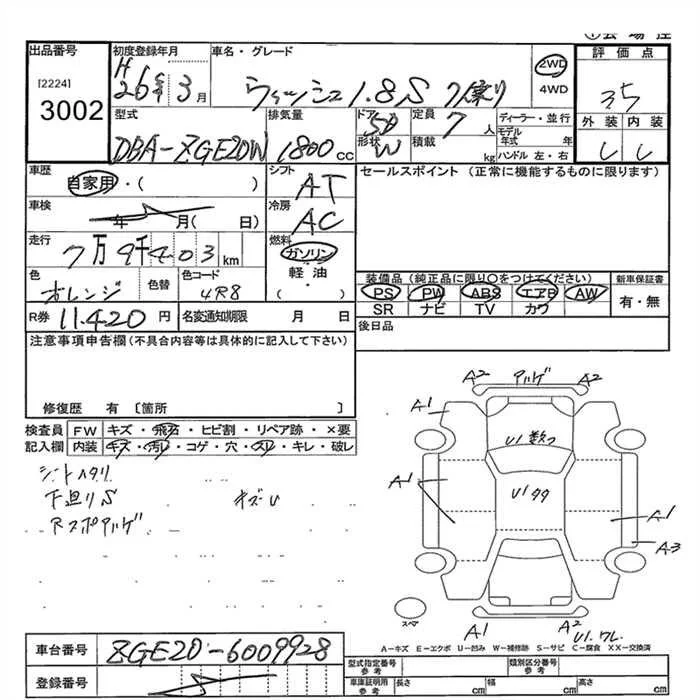 出品番号
[2224]
3002
初度登録年月
H26年3月
車名・グレード
ウィッシュ1.8S 7人乗り
2WD
4WD
評価点
35
外装 内装
型式
DBA-ZGE20W
排気量
1800cc
ドア
5D
形状
W
定員
7人
積載 kg
ディーラー・並行
モデル年式 年
ハンドル 左・右
車歴
自家用・( )
シフト
AT
セールスポイント (正常に機能するものに限ります)
車検
年 月( 日)
冷房
AC
走行
7万9千403km
燃料
ガソリン
軽油
( )
色
オレンジ
色替
色コード
4R8
装備品(純正品に限り〇をつけてください)
新車保証書
PS PW ABS エアB AW
SR ナビ TV カワ
有・無
R券 11,420円
名変通知期限 月 日
後日品
注意事項申告欄(不具合内容等は具体的に記入して下さい)
修復歴 有〔箇所 〕
検査員 FW キズ・飛石・ヒビ割・リペア跡・×要
記入欄 内装 キズ・汚れ・コゲ・穴・スレ・キレ・破レ
シートヘタリ
下廻りS キズU
A2 A2
A1
U1数つ
A1
U1タタ
A1
A3
スペア
A1 A2
U1.ワレ
A=キズ E=エクボ U=凹み W=補修跡 S=サビ C=腐食 XX=交換済
車台番号 ZGE20-6009928
登録番号
型式指定番号
参考
類別区分番号
参考
車庫証明用
参考
長さ cm 幅 cm 高さ cm